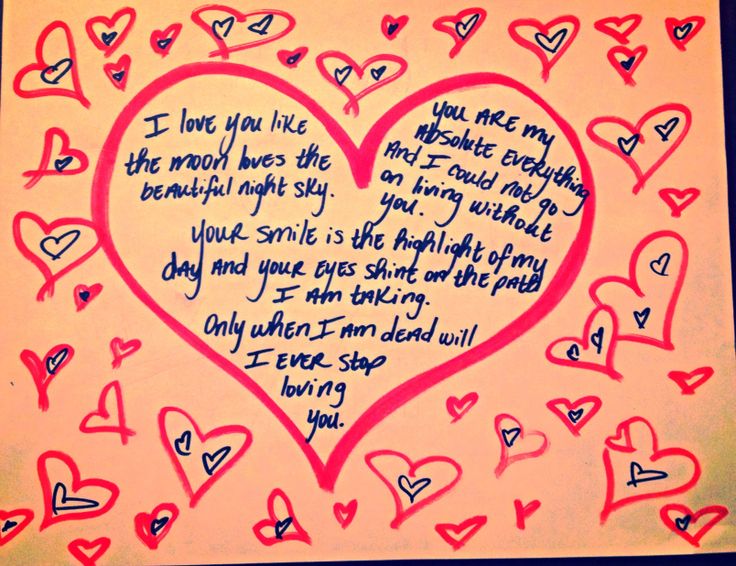 I love you like
the moon loves the
beautiful night sky.
you are my
absolute everything
And I could not go
on living without
you.
your smile is the highlight of my
day and your eyes shine on the path
I am taking.
Only when I am dead will
I ever stop
loving
you.